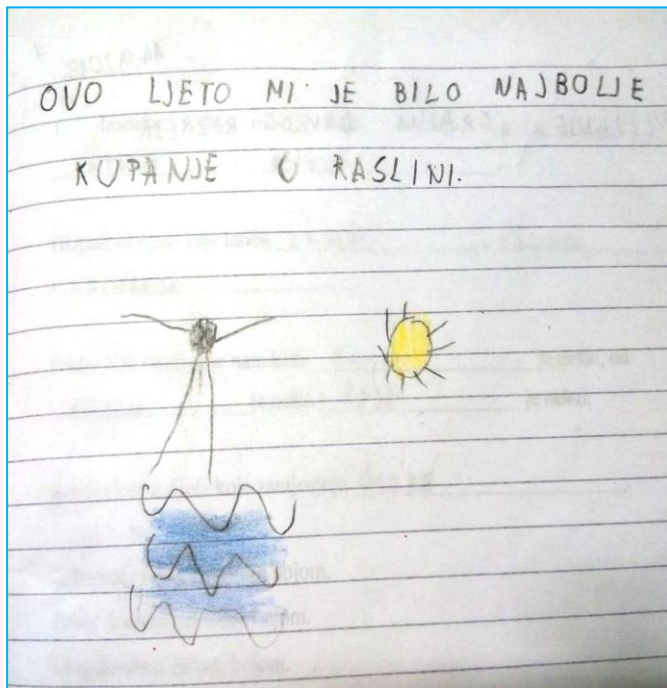 OVO LJETO MI JE BILO NAJBOLJE
KUPANJE U RASLINI.